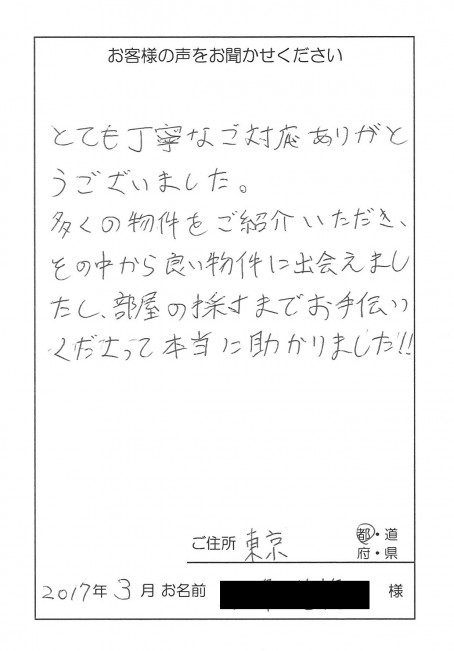 お客様の声をお聞かせください
とても丁寧なご対応ありがと
うございました。
多くの物件をご紹介いただき、
その中から良い物件に出会えまし
たし、部屋の採寸までお手伝い
くださって本当に助かりました!!
ご住所 東京 都・道
府・県
2017年 3月 お名前 様